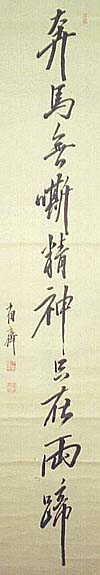 奔馬無嘶精神只在両蹄